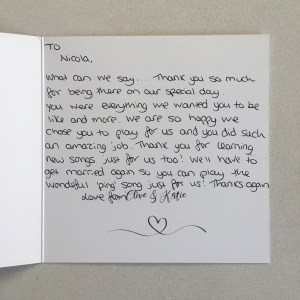 TO
Nicola,
What can we say... Thank you so much
for being there on our special day.
You were everything we wanted you to be
like and more. We are so happy we
chose you to play for us and you did such
an amazing job. Thank you for learning
new songs just for us too! We'll have to
get married again so you can play the
wonderful 'ping' song just for us! Thanks again
Love from Clive & Katie